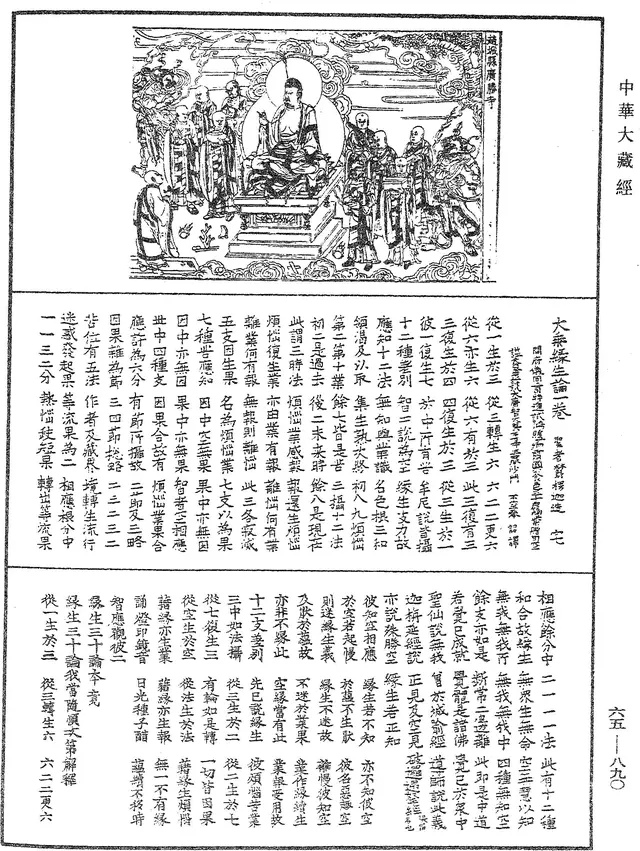 中華大藏經
趙城縣廣勝寺
大乘緣生論一卷 聖者鬱楞迦造
開府儀同三司特進試鴻臚卿肅國公食邑三千戶賜紫贈司空
謚大鑒正號大廣智大興善寺三藏沙門 不空奉 詔譯
從一生於三 從三轉生六 六二二更六
從六亦生六 從六有於三 此三復有三
三復生於四 四復生於三 從三生於一
彼一復生七 於中所有苦 牟尼說皆攝
十二種差別 智士說為空 緣生支力故
應知十二法 無知與業識 名色根三和
領渴及以取 集生熟次終 初八九煩惱
第二第十業 餘七皆是苦 三攝十二法
初二是過去 後二未來時 餘八是現在
此謂三時法 煩惱業感報 報還生煩惱
煩惱復生業 亦由業有報 離惱何有業
離業何有報 無報則離惱 此三各寂滅
五支因生果 名為煩惱業 七支以為果
七種苦應知 因中空無果 果中亦無因
因中亦無因 果中亦無果 智者空相應
世中四種支 因果合故有 煩惱業果合
應許為六分 有節所攝故 二節及三略
因果雜為節 三四節總略 二二三二
苦位有五法 作者及藏界 境轉生流行
迷惑發起果 等流果為二 相應根分中
一一三二分 熱惱缺短果 轉出等流果
相應餘分中 二一一一法 此有十二種
和合故緣生 無眾生無命 空無慧以知
無我無我所 無我無我中 四種無知空
餘支亦如是 斷常二邊離 此即是中道
若覺已成就 覺體是諸佛 覺已於眾中
聖仙說無我 曾於城喻經 導師說此義
迦栴延經說 正見及空見
亦說殊勝空 緣生若正知
彼知空相應 緣生若不知 亦不知彼空
於空若起慢 於蘊不生厭
則迷緣生義 緣生不迷故 離慢彼知空
及厭於蘊故 不迷於業果 業作緣續生
亦非不緣此 空緣當有此 業報受用故
十二支差別 先已說緣生 彼煩惱苦業
三中如法攝 從三生於二 從二生於七
從七復生三 有輪如是轉 一切皆因果
從空生於空 從法生於法 藉緣生煩惱
藉緣亦生業 藉緣亦生報 無一不有緣
誦燈印鏡音 日光種子醋 蘊續不移時
智應觀彼二
緣生三十論本竟
緣生三十論我當隨順次第解釋
從一生於三 從三轉生六 六二二更六
六五—八九〇